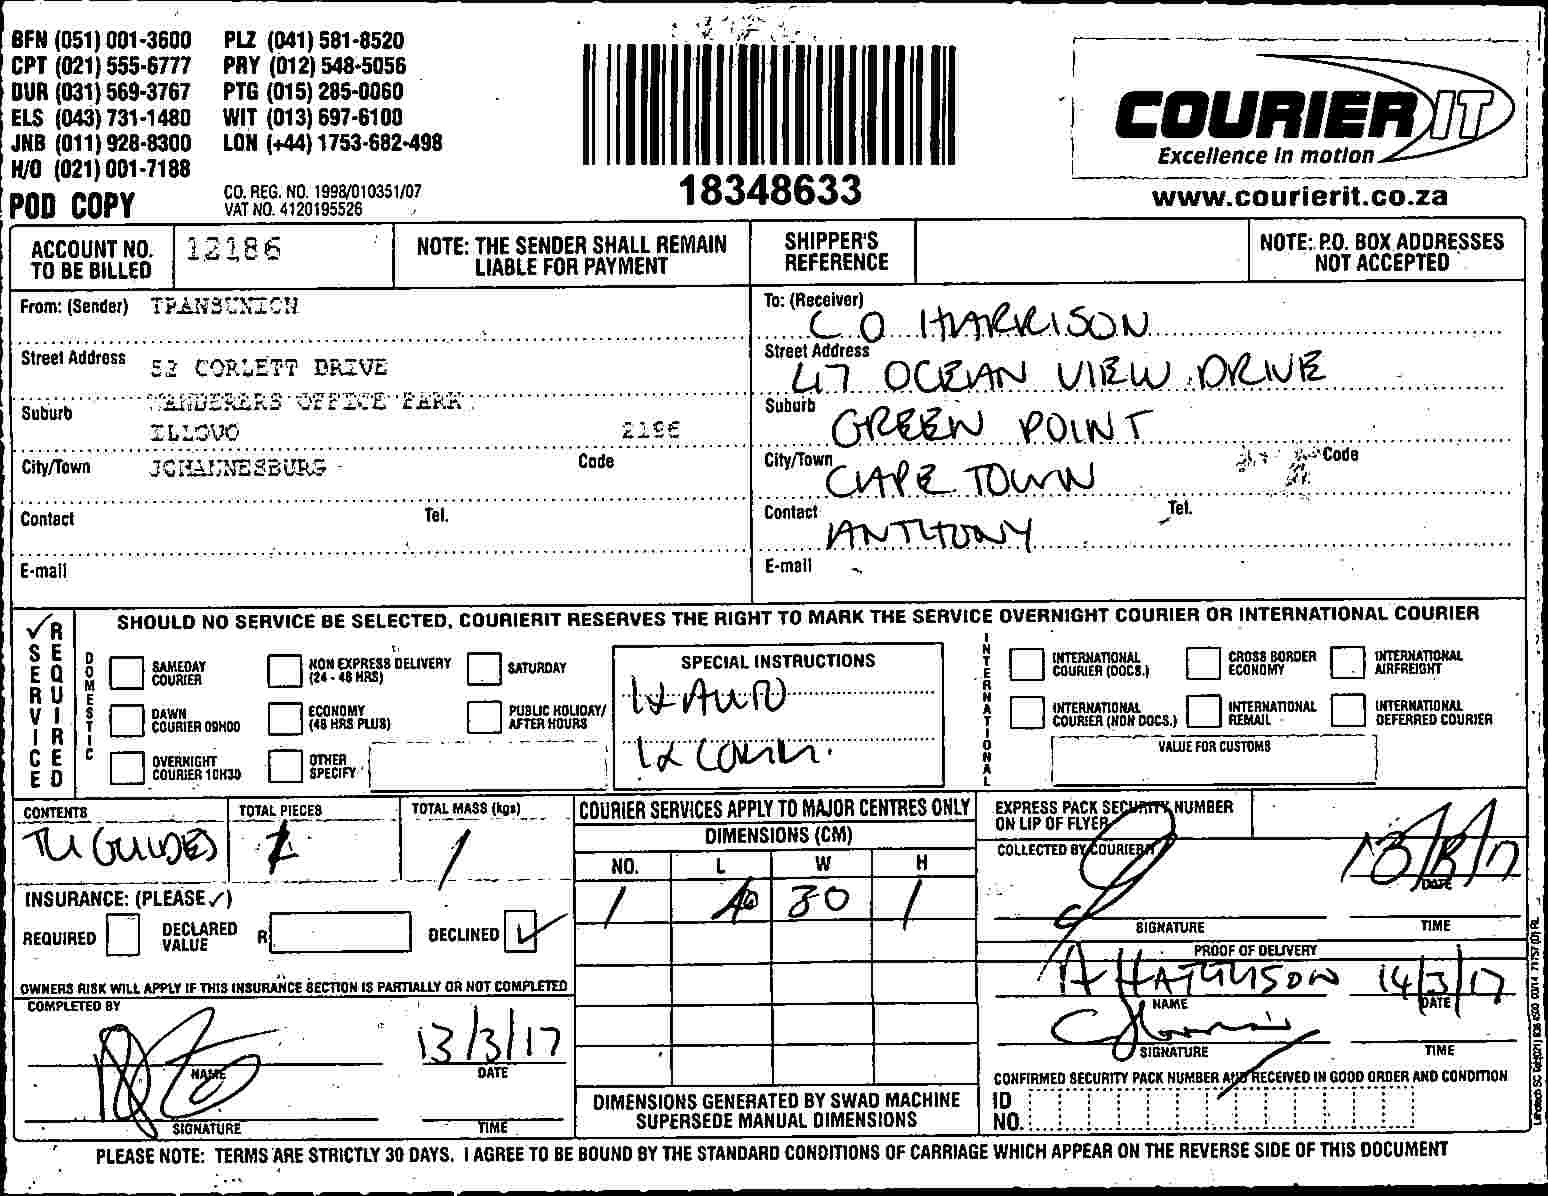 BFN (051) 001-3600 PLZ (041) 581-8520
CPT (021) 555-6777 PRY (012) 548-5056
DUR (031) 569-3767 PTG (015) 285-0060
ELS (043) 731-1480 WIT (013) 697-6100
JNB (011) 928-8300 LON (+44) 1753-682-498
H/O (021) 001-7188
POD COPY
CO. REG. NO. 1998/010351/07
VAT NO. 4120195526
18348633
COURIER IT
Excellence in motion
www.courierit.co.za
ACCOUNT NO. TO BE BILLED 12186
NOTE: THE SENDER SHALL REMAIN LIABLE FOR PAYMENT
SHIPPER'S REFERENCE
NOTE: P.O. BOX ADDRESSES NOT ACCEPTED
From: (Sender) TRANSUNION
Street Address 52 CORLETT DRIVE
WANDERERS OFFICE PARK
Suburb ILLOVO 2196
City/Town JOHANNESBURG Code
Contact Tel.
E-mail
To: (Receiver) C O HARRISON
Street Address 47 OCEAN VIEW DRIVE
Suburb GREEN POINT
City/Town CAPE TOWN Code
Contact ANTHONY Tel.
E-mail
✓ SERVICE REQUIRED
SHOULD NO SERVICE BE SELECTED, COURIERIT RESERVES THE RIGHT TO MARK THE SERVICE OVERNIGHT COURIER OR INTERNATIONAL COURIER
DOMESTIC
SAMEDAY COURIER
NON EXPRESS DELIVERY (24 - 48 HRS)
SATURDAY
DAWN COURIER 09H00
ECONOMY (48 HRS PLUS)
PUBLIC HOLIDAY/ AFTER HOURS
OVERNIGHT COURIER 10H30
OTHER SPECIFY
SPECIAL INSTRUCTIONS
1x AUTO
1x COMM.
INTERNATIONAL
INTERNATIONAL COURIER (DOCS.)
CROSS BORDER ECONOMY
INTERNATIONAL AIRFREIGHT
INTERNATIONAL COURIER (NON DOCS.)
INTERNATIONAL REMAIL
INTERNATIONAL DEFERRED COURIER
VALUE FOR CUSTOMS
CONTENTS TU GUIDES
TOTAL PIECES
TOTAL MASS (kgs) 1
INSURANCE: (PLEASE ✓)
REQUIRED
DECLARED VALUE R
DECLINED ✓
OWNERS RISK WILL APPLY IF THIS INSURANCE SECTION IS PARTIALLY OR NOT COMPLETED
COMPLETED BY
NAME
13/3/17
DATE
SIGNATURE TIME
COURIER SERVICES APPLY TO MAJOR CENTRES ONLY
DIMENSIONS (CM)
NO. L W H
1 40 30 1
DIMENSIONS GENERATED BY SWAD MACHINE SUPERSEDE MANUAL DIMENSIONS
EXPRESS PACK SECURITY NUMBER ON LIP OF FLYER
COLLECTED BY COURIERIT
DATE
SIGNATURE TIME
PROOF OF DELIVERY
A HARRISON 14/3/17
NAME DATE
SIGNATURE TIME
CONFIRMED SECURITY PACK NUMBER AND RECEIVED IN GOOD ORDER AND CONDITION
ID NO.
PLEASE NOTE: TERMS ARE STRICTLY 30 DAYS. I AGREE TO BE BOUND BY THE STANDARD CONDITIONS OF CARRIAGE WHICH APPEAR ON THE REVERSE SIDE OF THIS DOCUMENT